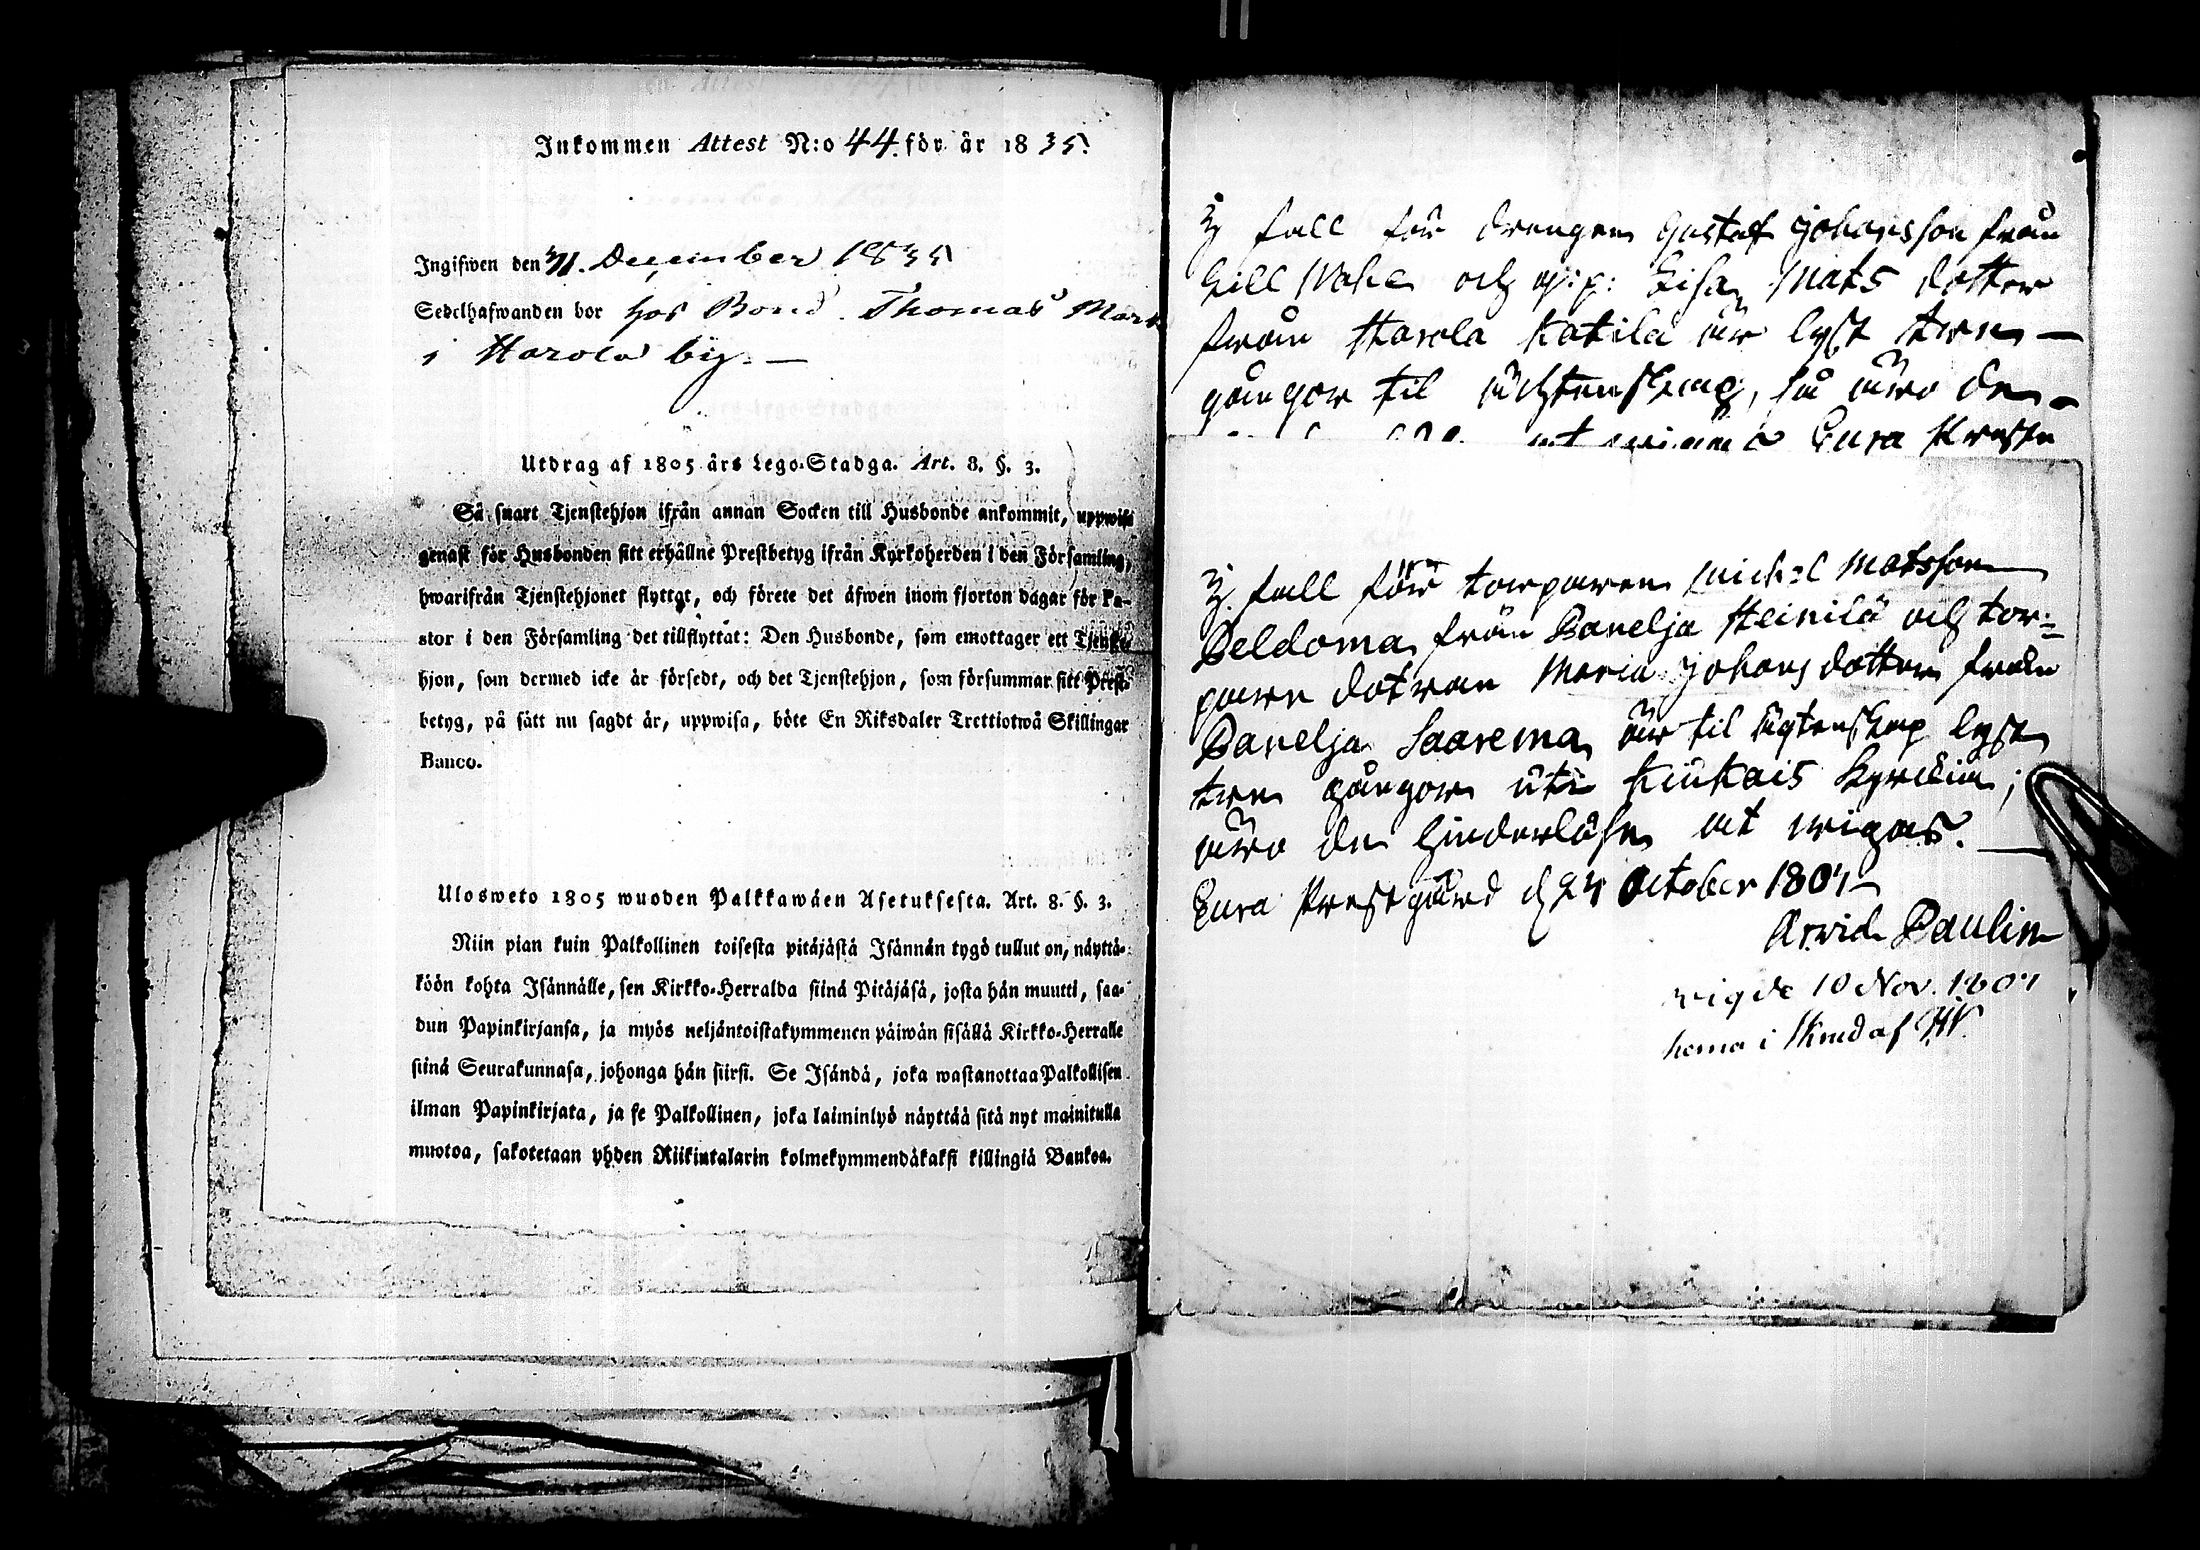 Inkommen Attest N:o 44. för år 1835.
Ingifwen den 31. December 1835
Sedelhafwanden bor hos Bond. Thomas
i Harola by. —
Utdrag af 1805 års Lego-Stadga. Art. 8. §. 3.
Så snart Tjenstehjon ifrån annan Socken till Husbonde ankommit, uppwise
genast för Husbonden sitt erhållne Prestbetyg ifrån Kyrkoherden i den Församling,
hwarifrån Tjenstehjonet flyttat, och förete det äfwen inom fjorton dagar för Pa-
stor i den Församling det tillflyttat: Den Husbonde, som emottager ett Tjenste-
hjon, som dermed icke är försedt, och det Tjenstehjon, som försummar sitt Prest-
betyg, på sätt nu sagdt är, uppwisa, böte En Riksdaler Trettiotwå Skillingar
Banco.
Ulosweto 1805 wuoden Palkkawäen Asetuksesta. Art. 8. §. 3.
Niin pian kuin Palkollinen toisesta pitäjästä Isännän tygö tullut on, näyttä-
köön kohta Isännälle, sen Kirkko-Herralda siinä Pitäjäsä, josta hän muutti, saa-
dun Papinkirjansa, ja myös neljäntoistakymmenen päiwän sisällä Kirkko-Herralle
siinä Seurakunnasa, johonga hän siirsi. Se Isändä, joka wastanottaa Palkollisen
ilman Papinkirjata, ja se Palkollinen, joka laiminlyö näyttää sitä nyt mainitulla
muotoa, sakotetaan yhden Riikintalarin kolmekymmendäkaksi killingiä Bankoa.
fall för drengen Gustaf Johansson från
och Lisa Mats dotter
från Harola Katila är lyst tren —
gångor til ächtenskap, så äro de
Eura
fall för torparen Michel Matsson
Peldoma från Panelja Heinilä och tor=
pare dotran Maria Johans dotter från
Panelja Saarema är til ägtenskap lyst
tre gångor uti Kiukais kyrckia;
äro de hinderlöse at wigas. —
Eura Prestgård d 24 October 1807
Arvid Paulin
wigde 10 Nov. 1807
hema i af